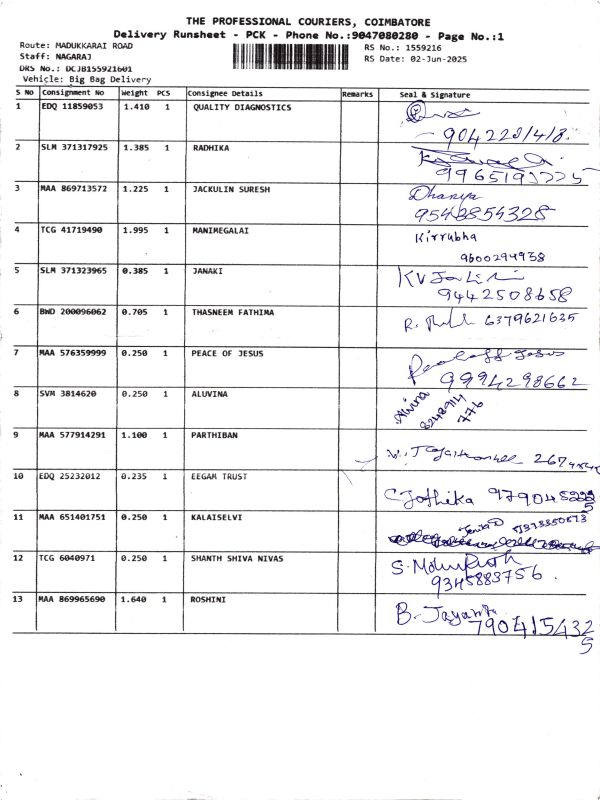 THE PROFESSIONAL COURIERS, COIMBATORE
Delivery Runsheet - PCK - Phone No.:9047080280 - Page No.:1
Route: MADUKKARAI ROAD RS No.: 1559216
Staff: NAGARAJ RS Date: 02-Jun-2025
DRS No.: DCJB155921601
Vehicle: Big Bag Delivery
S No Consignment No Weight PCS Consignee Details Remarks Seal & Signature
1 EDQ 11859053 1.410 1 QUALITY DIAGNOSTICS
2 SLM 371317925 1.385 1 RADHIKA
3 MAA 869713572 1.225 1 JACKULIN SURESH Dhanya
9543854328
4 TCG 41719490 1.995 1 MANIMEGALAI Kirrubha
9600294938
5 SLM 371323965 0.385 1 JANAKI
9442508658
6 BWD 200096062 0.705 1 THASNEEM FATHIMA R. 6379621635
7 MAA 576359999 0.250 1 PEACE OF JESUS
9994298662
8 SVM 3814620 0.250 1 ALUVINA Alvina
9 MAA 577914291 1.100 1 PARTHIBAN
10 EDQ 25232012 0.235 1 EEGAM TRUST C Jothika
11 MAA 651401751 0.250 1 KALAISELVI
12 TCG 6040971 0.250 1 SHANTH SHIVA NIVAS S.
9345883756
13 MAA 869965690 1.640 1 ROSHINI B.
7904154325